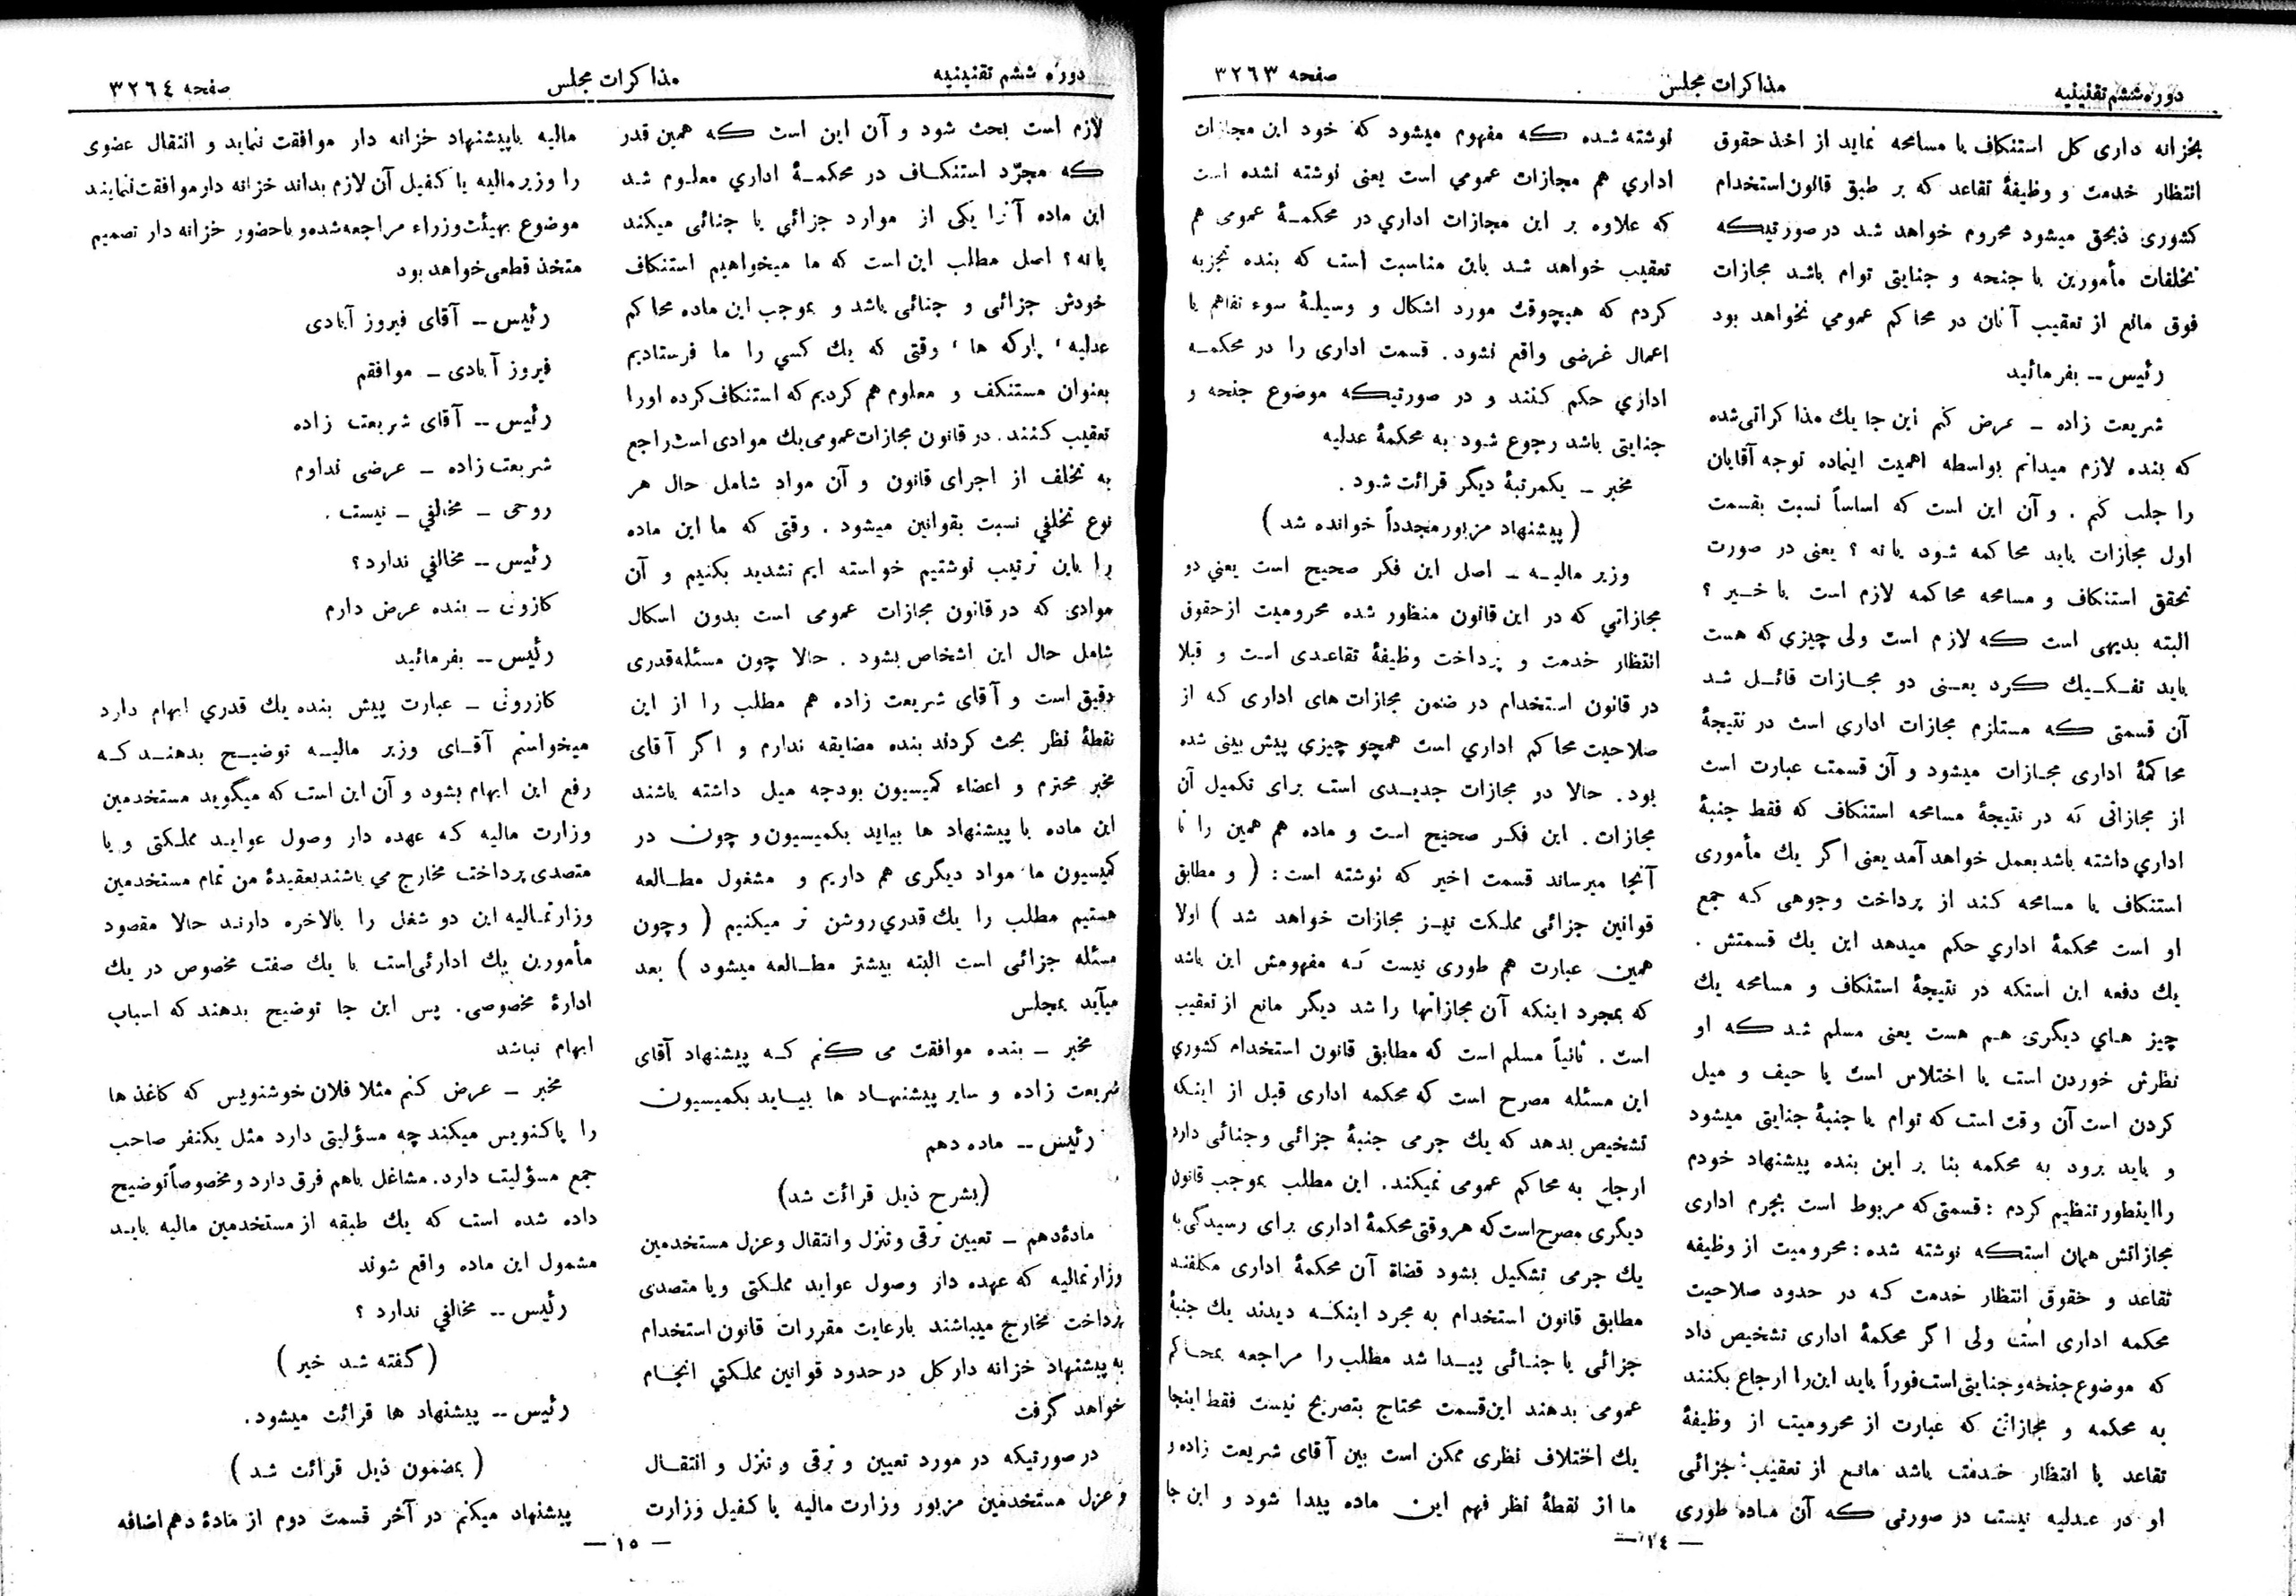 دوره ششم تقنینیه
مذاکرات مجلس
صفحه ۳۲۶۳
بخزانه داری کل استنکاف یا مسامحه نماید از اخذ حقوق
انتظار خدمت و وظیفهٔ تقاعد که بر طبق قانون استخدام
کشوری ذیحق میشود محروم خواهد شد در صورتیکه
تخلفات مأمورین با جنحه و جنایتی توام باشد مجازات
فوق مانع از تعقیب آنان در محاکم عمومي نخواهد بود
رئیس -- بفرمائید
شریعت زاده - عرض کنم این جا یك مذاکراتی شده
که بنده لازم میدانم بواسطه اهمیت اینماده توجه آقایان
را جلب کنم . و آن این است که اساساً نسبت بقسمت
اول مجازات باید محاکمه شود یا نه ؟ یعنی در صورت
تحقق استنکاف و مسامحه محاکمه لازم است یا خیر ؟
البته بدیهی است که لازم است ولی چیزی که هست
باید تفکیك کرد یعنی دو مجازات قائل شد
آن قسمتی که مستلزم مجازات اداری است در نتیجهٔ
محاکمهٔ اداری مجازات میشود و آن قسمت عبارت است
از مجازاتی که در نتیجهٔ مسامحه استنکاف که فقط جنبهٔ
اداري داشته باشد بعمل خواهد آمد یعنی اگر یك مأموری
استنکاف یا مسامحه کند از پرداخت وجوهی که جمع
او است محکمهٔ اداري حکم میدهد این یك قسمتش .
یك دفعه این استکه در نتیجهٔ استنکاف و مسامحه یك
چیز هاي دیگری هم هست یعنی مسلم شد که او
نظرش خوردن است یا اختلاس است یا حیف و میل
کردن است آن وقت است که توام با جنبهٔ جنایتی میشود
و باید برود به محکمه بنا بر این بنده پیشنهاد خودم
را اینطور تنظیم کردم : قسمتی که مربوط است بجرم اداری
مجازاتش همان استکه نوشته شده : محرومیت از وظیفه
تقاعد و حقوق انتظار خدمت که در حدود صلاحیت
محکمه اداری است ولی اگر محکمهٔ اداری تشخیص داد
که موضوع جنحه و جنایتی است فوراً باید این را ارجاع بکنند
به محکمه و مجازاتی که عبارت از محرومیت از وظیفهٔ
تقاعد یا انتظار خدمت باشد مانع از تعقیب جزائی
او در عدلیه نیست در صورتی که آن ماده طوری
نوشته شده که مفهوم میشود که خود این مجازات
اداري هم مجازات عمومي است یعنی نوشته نشده است
که علاوه بر این مجازات اداري در محکمهٔ عمومی هم
تعقیب خواهد شد باین مناسبت است که بنده تجزیه
کردم که هیچوقت مورد اشکال و وسیلهٔ سوء تفاهم یا
اعمال غرضی واقع نشود . قسمت اداری را در محکمه
اداری حکم کنند و در صورتیکه موضوع جنحه و
جنایتی باشد رجوع شود به محکمهٔ عدلیه
مخبر - یکمرتبهٔ دیگر قرائت شود .
( پیشنهاد مزبور مجدداً خوانده شد )
وزیر مالیه - اصل این فکر صحیح است یعني دو
مجازاتي که در این قانون منظور شده محرومیت از حقوق
انتظار خدمت و پرداخت وظیفهٔ تقاعدی است و قبلا
در قانون استخدام در ضمن مجازات های اداری که از
صلاحیت محاکم اداري است همچو چیزی پیش بینی شده
بود . حالا دو مجازات جدیدی است برای تکمیل آن
مجازات . این فکر صحیح است و ماده هم همین را تا
آنجا میرساند قسمت اخیر که نوشته است : ( و مطابق
قوانین جزائی مملکت نیز مجازات خواهد شد ) اولا
همین عبارت هم طوری نیست که مفهومش این باشد
که بمجرد اینکه آن مجازاتها را شد دیگر مانع از تعقیب
است . ثانیاً مسلم است که مطابق قانون استخدام کشوري
این مسئله مصرح است که محکمه اداری قبل از اینکه
تشخیص بدهد که یك جرمی جنبهٔ جزائی و جنائی دارد
ارجاع به محاکم عمومی نمیکند . این مطلب بموجب قانون
دیگری مصرح است که هر وقتی محکمهٔ اداری برای رسیدگی با
یك جرمی تشکیل بشود قضاة آن محکمهٔ اداری مکلفند
مطابق قانون استخدام به مجرد اینکه دیدند یك جنبهٔ
جزائی یا جنائی پیدا شد مطلب را مراجعه بمحاکم
عمومی بدهند این قسمت محتاج بتصریح نیست فقط اینجا
یك اختلاف نظری ممکن است بین آقای شریعت زاده و
ما از نقطهٔ نظر فهم این ماده پیدا شود و این جا
— ١٤ —
دوره ششم تقنینیه
مذاکرات مجلس
صفحه ۳۲٦٤
لازم است بحث شود و آن این است که همین قدر
که مجرّد استنکاف در محکمهٔ اداري معلوم شد
این ماده آنرا یکی از موارد جزائي یا جنائی میکند
یا نه ؟ اصل مطلب این است که ما میخواهیم استنکاف
خودش جزائی و جنائی باشد و بموجب این ماده محاکم
عدلیه ، پارکه ها ، وقتی که یك کسي را ما فرستادیم
بعنوان مستنکف و معلوم هم کردیم که استنکاف کرده او را
تعقیب کنند . در قانون مجازات عمومی یك موادی است راجع
به تخلف از اجرای قانون و آن مواد شامل حال هر
نوع تخلفي نسبت بقوانین میشود . وقتی که ما این ماده
را باین ترتیب نوشتیم خواسته ایم تشدید بکنیم و آن
موادی که در قانون مجازات عمومی است بدون اسکال
شامل حال این اشخاص بشود . حالا چون مسئله قدری
دقیق است و آقای شریعت زاده هم مطلب را از این
نقطهٔ نظر بحث کردند بنده مضایقه ندارم و اگر آقای
مخبر محترم و اعضاء کمیسیون بودجه میل داشته باشند
این ماده با پیشنهاد ها بیاید بکمیسیون و چون در
کمیسیون ما مواد دیگری هم داریم و مشغول مطالعه
هستیم مطلب را یك قدري روشن تر میکنیم ( و چون
مسئله جزائی است البته بیشتر مطالعه میشود ) بعد
میآید بمجلس
مخبر - بنده موافقت می کنم که پیشنهاد آقای
شریعت زاده و سایر پیشنهاد ها بیاید بکمیسیون
رئیس -- ماده دهم
(بشرح ذیل قرائت شد)
مادهٔ دهم - تعیین ترقی و تنزل و انتقال و عزل مستخدمین
وزارتمالیه که عهده دار وصول عواید مملکتی و یا متصدی
پرداخت مخارج میباشند بارعایت مقررات قانون استخدام
به پیشنهاد خزانه دار کل در حدود قوانین مملکتي انجام
خواهد گرفت
در صورتیکه در مورد تعیین و ترقی و تنزل و انتقال
و عزل مستخدمین مزبور وزارت مالیه یا کفیل وزارت
مالیه باپیشنهاد خزانه دار موافقت ننماید و انتقال عضوی
را وزیر مالیه یا کفیل آن لازم بداند خزانه دار موافقت ننمایند
موضوع بهیئت وزراء مراجعه شده و با حضور خزانه دار تصمیم
متخذ قطعی خواهد بود
رئیس -- آقای فیروز آبادی
فیروز آبادی - موافقم
رئیس -- آقای شریعت زاده
شریعت زاده - عرضی ندارم
روحی - مخالفي - نیست .
رئیس -- مخالفي ندارد ؟
کازونی - بنده عرض دارم
رئیس -- بفرمائید
کازرونی - عبارت پیش بنده یك قدري ابهام دارد
میخواستم آقای وزیر مالیه توضیح بدهند که
رفع این ابهام بشود و آن این است که میگوید مستخدمین
وزارت مالیه که عهده دار وصول عواید مملکتی و یا
متصدی پرداخت مخارج می باشند بعقیدهٔ من تمام مستخدمین
وزارتمالیه این دو شغل را بالاخره دارند حالا مقصود
مأمورین یك ادارئی است با یك صفت مخصوص در یك
ادارهٔ مخصوصی . پس این جا توضیح بدهند که اسباب
ابهام نباشد
مخبر - عرض کنم مثلا فلان خوشنویس که کاغذ ها
را پاکنویس میکند چه مسؤلیتی دارد مثل یکنفر صاحب
جمع مسؤلیت دارد . مشاغل باهم فرق دارد و مخصوصاً توضیح
داده شده است که یك طبقه از مستخدمین مالیه باید
مشمول این ماده واقع شوند
رئیس -- مخالفي ندارد ؟
( گفته شد خیر )
رئیس -- پیشنهاد ها قرائت میشود .
( بمضمون ذیل قرائت شد )
پیشنهاد میکنم در آخر قسمت دوم از مادهٔ دهم اضافه
— ١٥ —